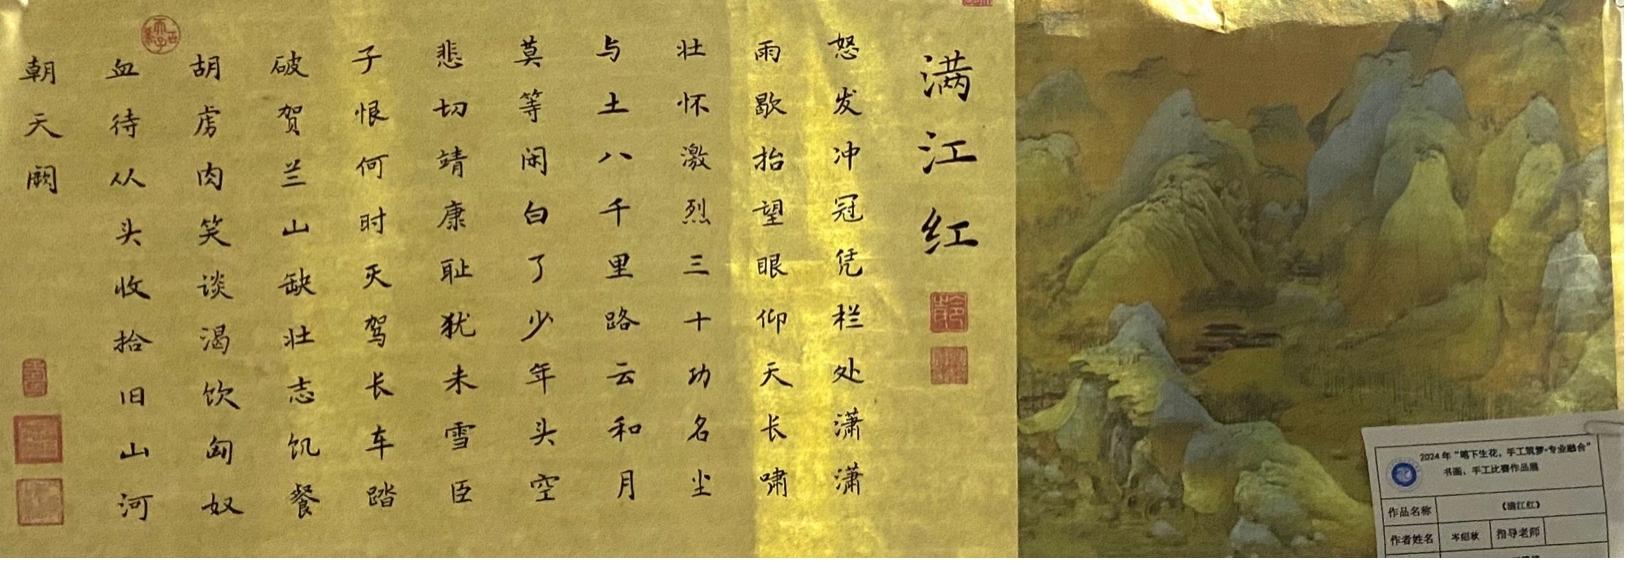 满江红
怒发冲冠凭栏处潇潇
雨歇抬望眼仰天长啸
壮怀激烈三十功名尘
与土八千里路云和月
莫等闲白了少年头空
悲切靖康耻犹未雪臣
子恨何时灭驾长车踏
破贺兰山缺壮志饥餐
胡虏肉笑谈渴饮匈奴
血待从头收拾旧山河
朝天阙
2024年“笔下生花,手工筑梦·专业融合”
书画、手工比赛作品展
作品名称 《满江红》
作者姓名 岑绍秋 指导老师